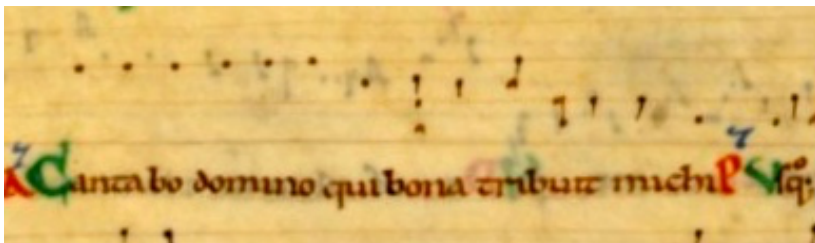 A Cantabo domino qui bona tribuit michi P Usq;